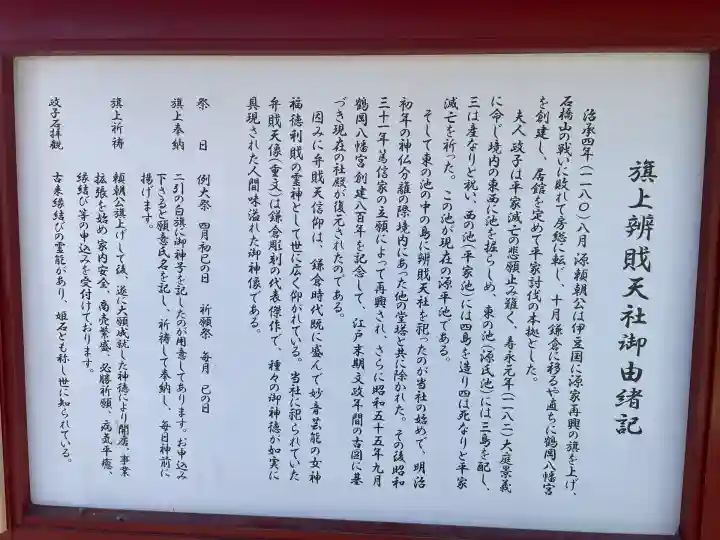 旗上辨戝天社御由緒記
治承四年(一一八〇)八月 源頼朝公は伊豆国に源家再興の旗を上げ、
石橋山の戦いに敗れて房総に転じ、十月鎌倉に移るや直ちに鶴岡八幡宮
を創建し、居館を定めて平家討伐の本拠とした。
夫人政子は平家滅亡の悲願止み難く、寿永元年(一一八二)大庭景義
に命じ境内の東西に池を掘らしめ、東の池(源氏池)には三島を配し、
三は産なりと祝い、西の池(平家池)には四島を造り四は死なりと平家
滅亡を祈った。この池が現在の源平池である。
そして東の池の中の島に辨戝天社を祀ったのが当社の始めで、明治
初年の神仏分離の際境内にあった他の堂塔と共に除かれた。その後昭和
三十一年篤信家の立願によって再興され、さらに昭和五十五年九月
鶴岡八幡宮創建八百年を記念して、江戸末期文政年間の古図に基
づき現在の社殿が復元されたのである。
因みに弁戝天信仰は、鎌倉時代既に盛んで妙音芸能の女神
福徳利戝の霊神として世に広く仰がれている。当社に祀られていた
弁戝天像(重文)は鎌倉彫刻の代表傑作で、種々の御神徳が如実に
具現された人間味溢れた御神像である。
祭 日 例大祭 四月初巳の日 祈願祭 毎月 巳の日
旗上奉納 二引の白旗に御神子を記したのが用意してあります。お申込み
下さると願意氏名を記し、祈祷して奉納し、毎日神前に
揚げます。
旗上祈祷 頼朝公旗上げして後、遂に大願成就した神徳により開店、事業
拡張を始め家内安全、商売繁盛、必勝祈願、病気平癒、
縁結び等の申込みを受付けております。
政子石拝観 古来縁結びの霊能があり、姫石とも称し世に知られている。